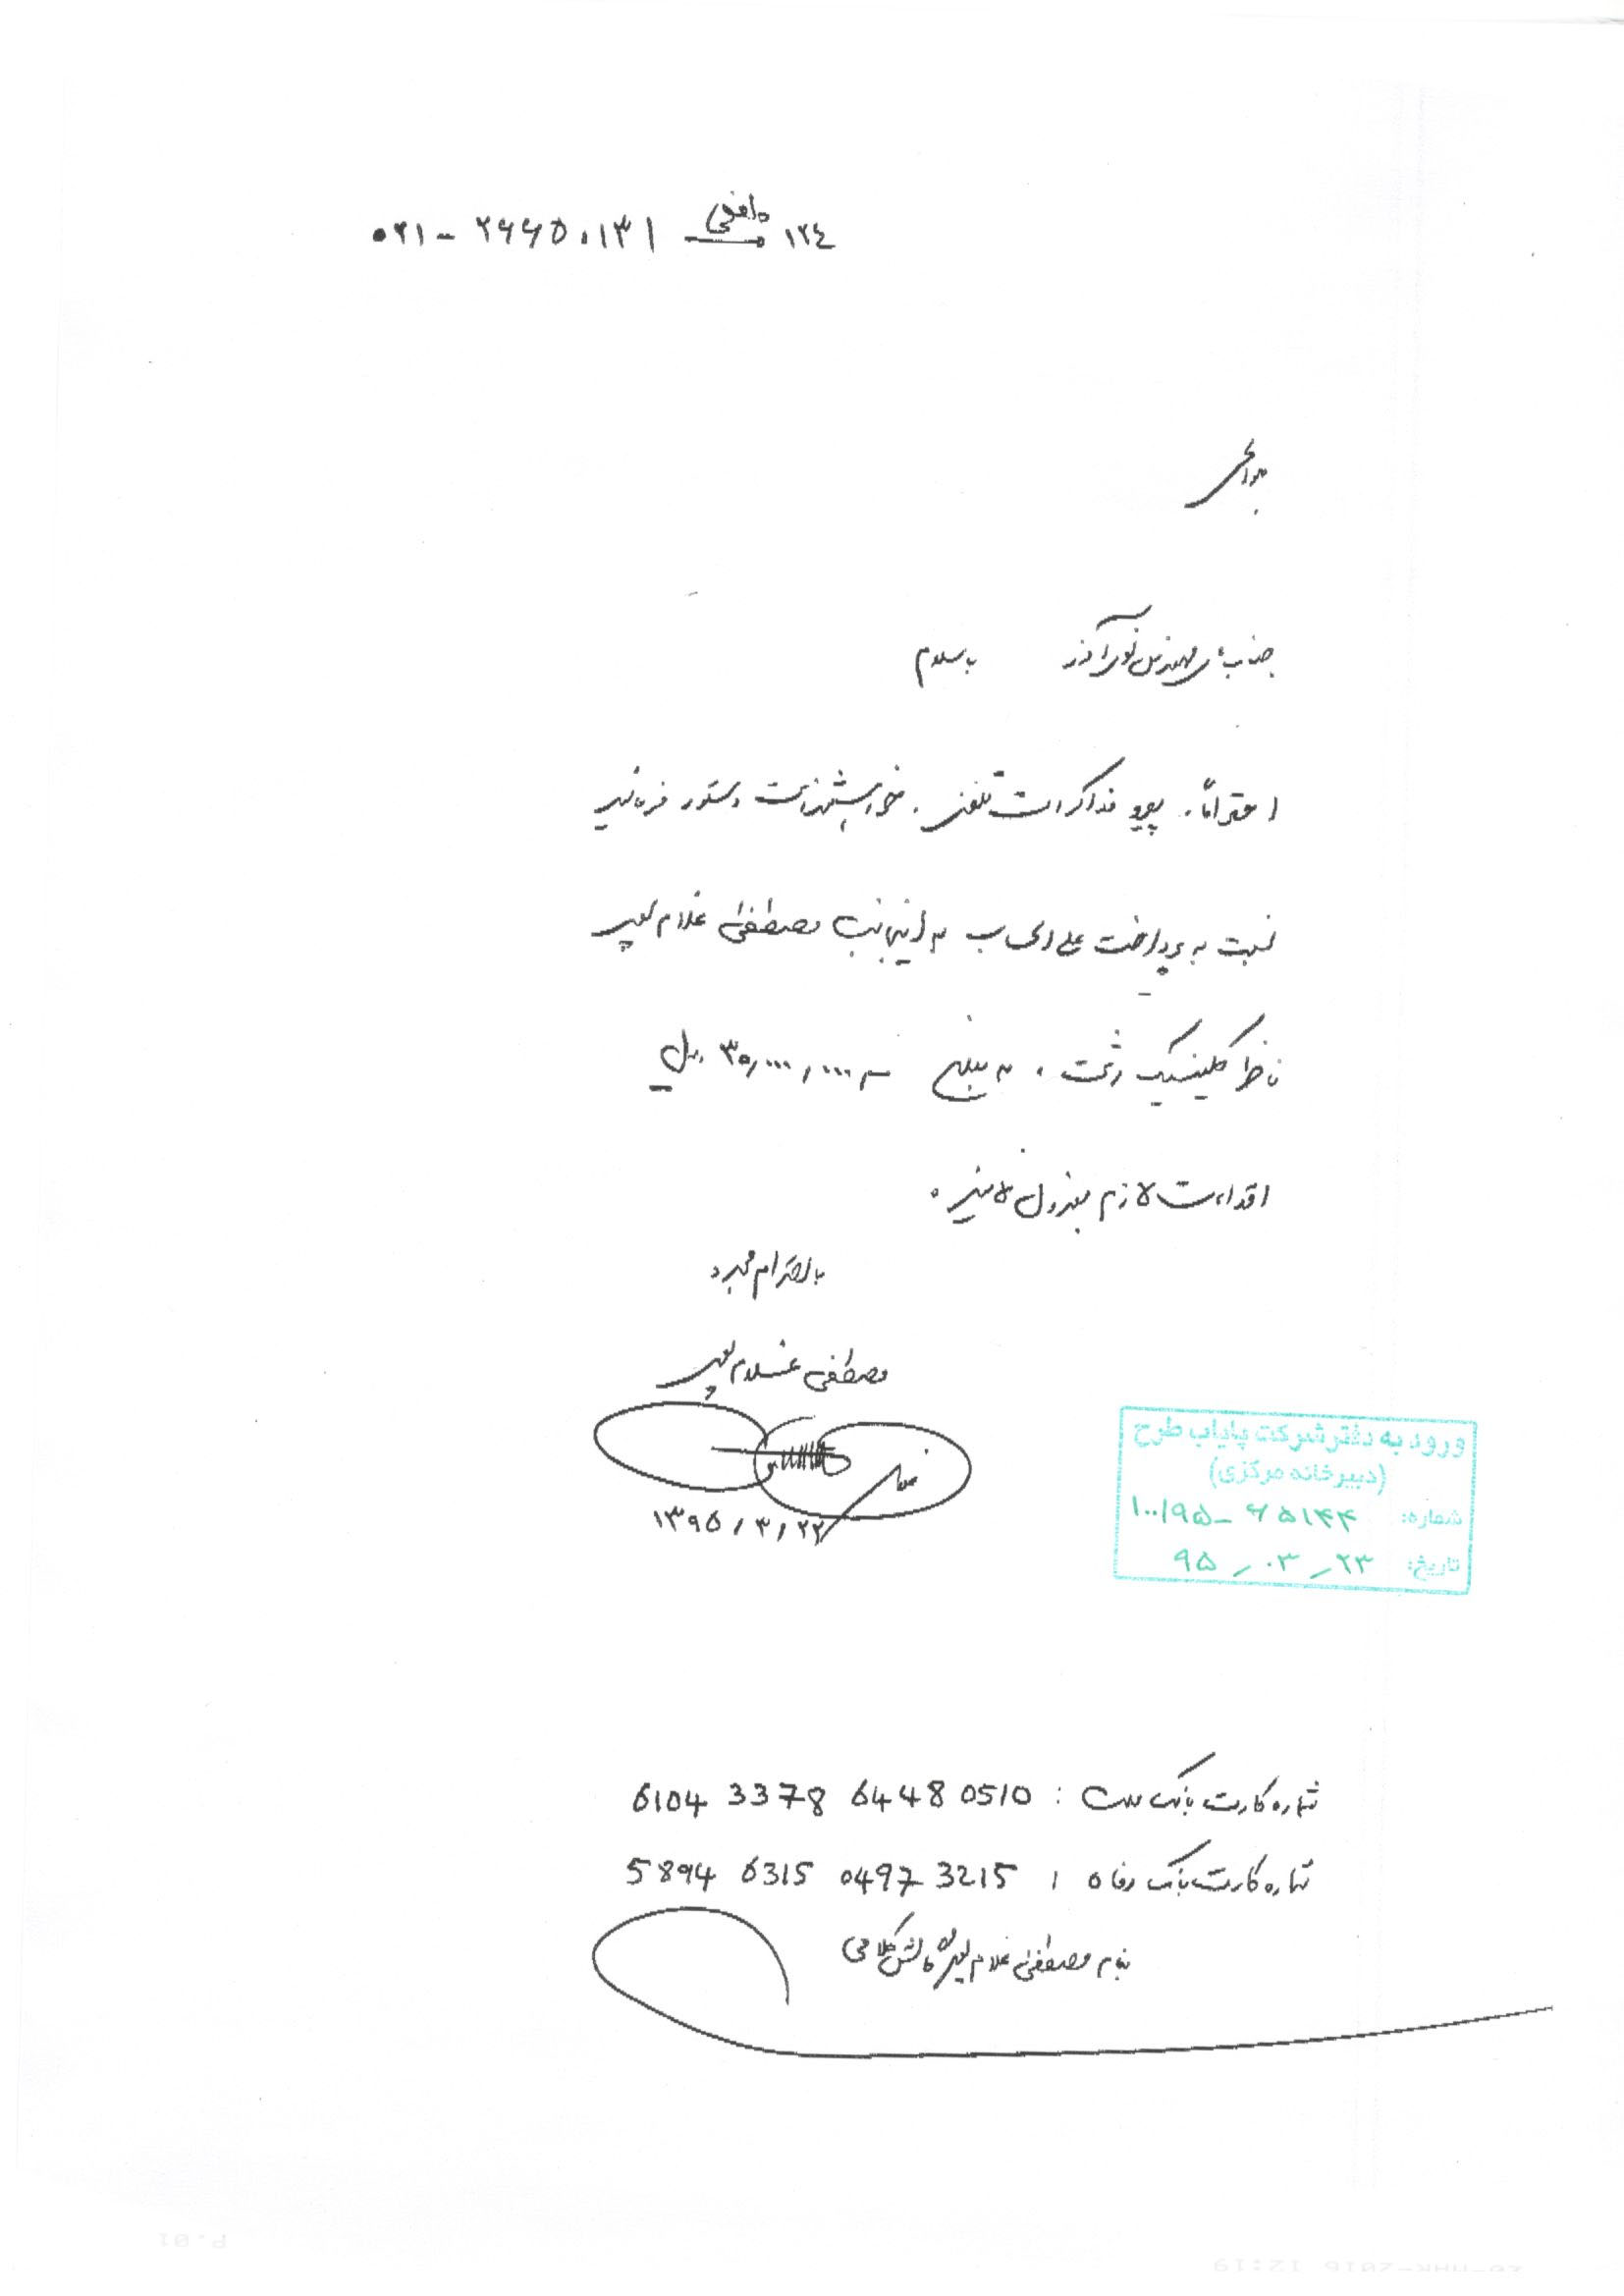 ۰۲۱- ۲۶۶۵۰۱۳۱ داخلی ۱۲۴
جناب آقای مهندس نورآذر با سلام
احتراماً، پیرو مذاکرات تلفنی، خواهشمند است دستور فرمائید
نسبت به پرداخت علی الحساب به اینجانب مصطفی غلام پور
ناظر کلینیک رشت، به مبلغ ۳۰,۰۰۰,۰۰۰ ریال
اقدامات لازم مبذول نمائید.
با احترام مجدد
مصطفی غلام پور
۱۳۹۵/۳/۲۲
ورود به دفتر شرکت پایاب طرح
(دبیرخانه مرکزی)
شماره: ۱۰۰/۹۵- ۶۵۱۴۴
تاریخ: ۲۳ - ۰۳ - ۹۵
شماره کارت بانک ملت : 6104 3378 6448 0510
شماره کارت بانک رفاه : 5894 6315 0497 3215
بنام مصطفی غلام پور
P.01